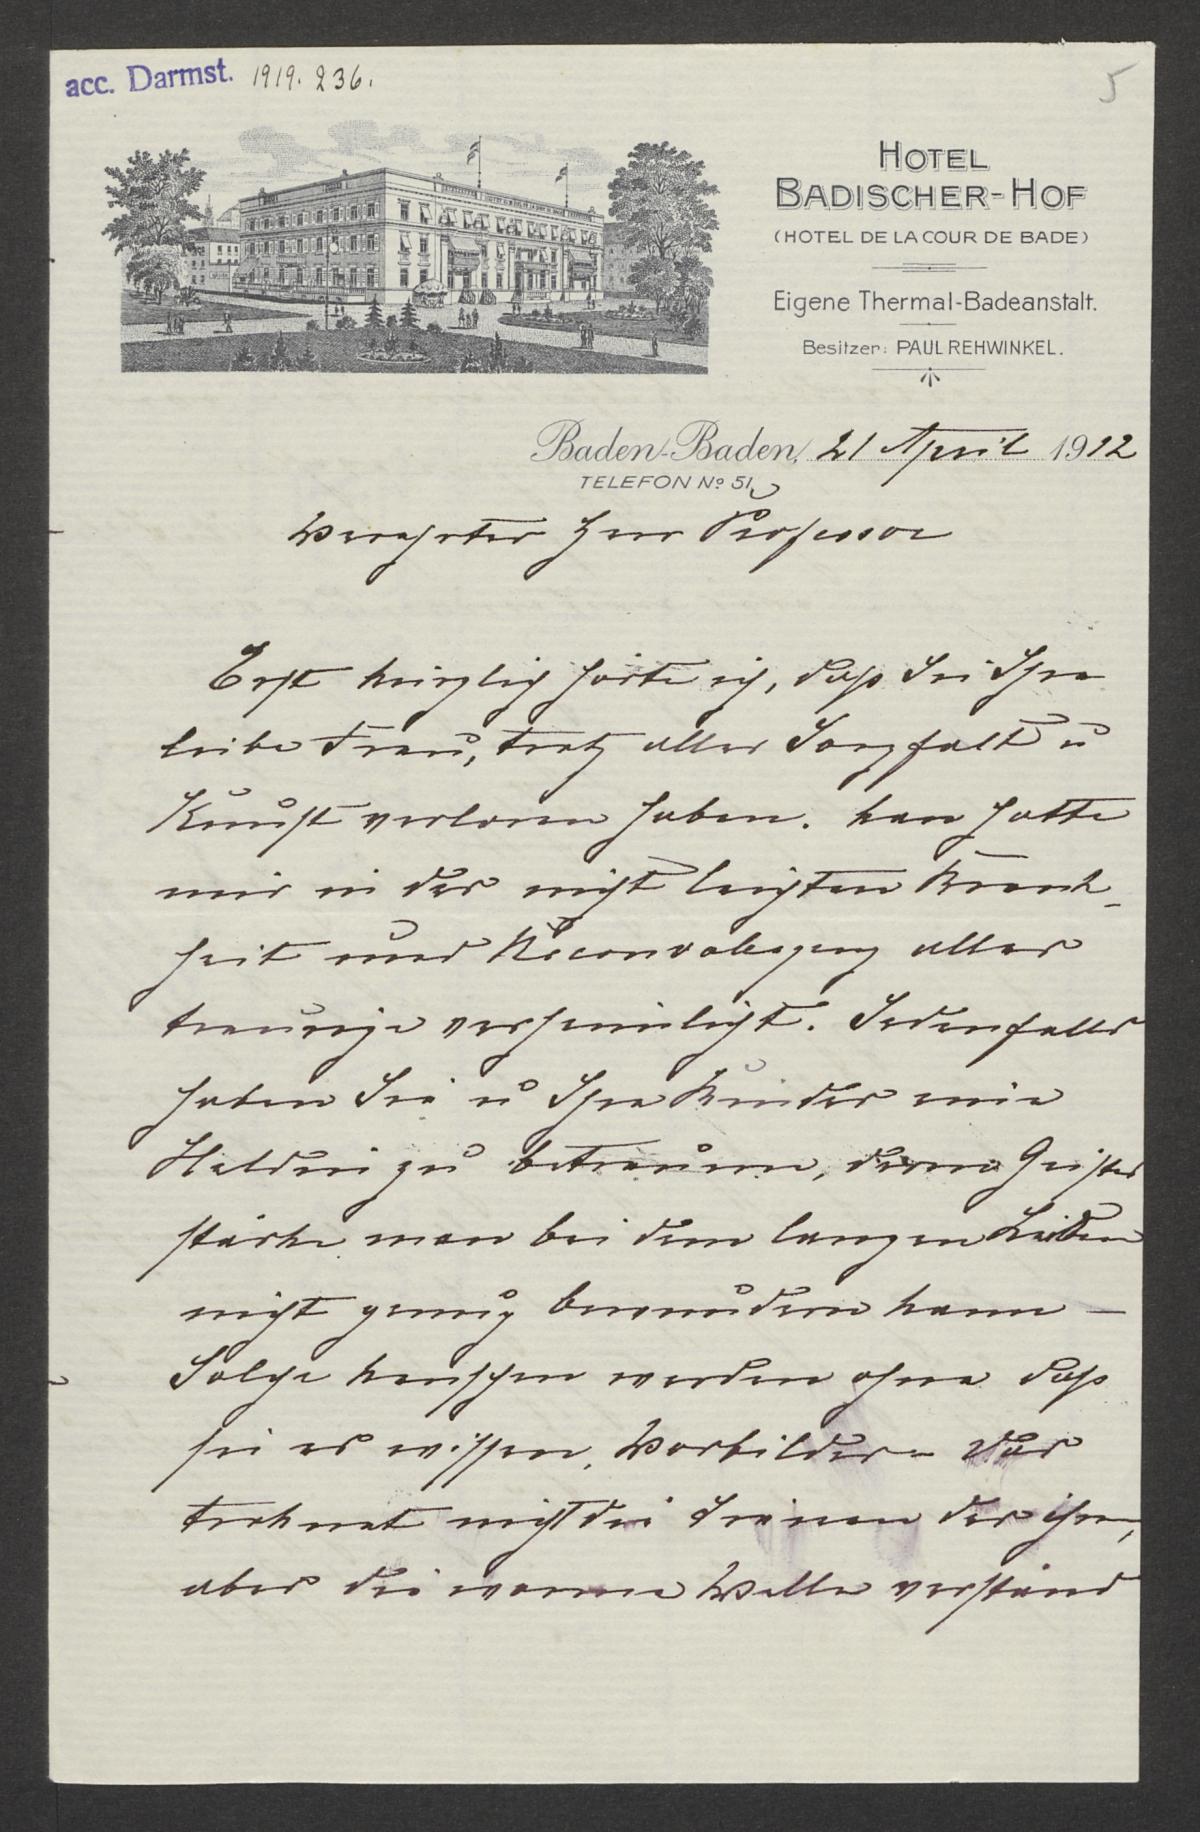 acc. Darmst. 1919. 236.
5
HOTEL
BADISCHER-HOF
(HOTEL DE LA COUR DE BADE)
Eigene Thermal-Badeanstalt.
Besitzer: PAUL REHWINKEL.
Baden-Baden, 21 April 1912
TELEFON No 51.
Verehrter Herr Professor
Erst kürzlich hörte ich, daß Sie Ihre
liebe Frau, trotz aller Sorgfalt u
Kunst verloren haben. Man hatte
mir in der nicht leichten Krank-
heit und Reconvalescenz alles
traurige verheimlicht. Jedenfalls
haben Sie u Ihre Kinder eine
Heldin zu betrauern, deren Geistes
stärke man bei dem langen Leiden
nicht genug bewundern kann –
Solche Menschen werden ohne daß
sie es wissen, Vorbilder – Das
trocknet nicht die Tränen der ihren,
aber die warme Welle verständ